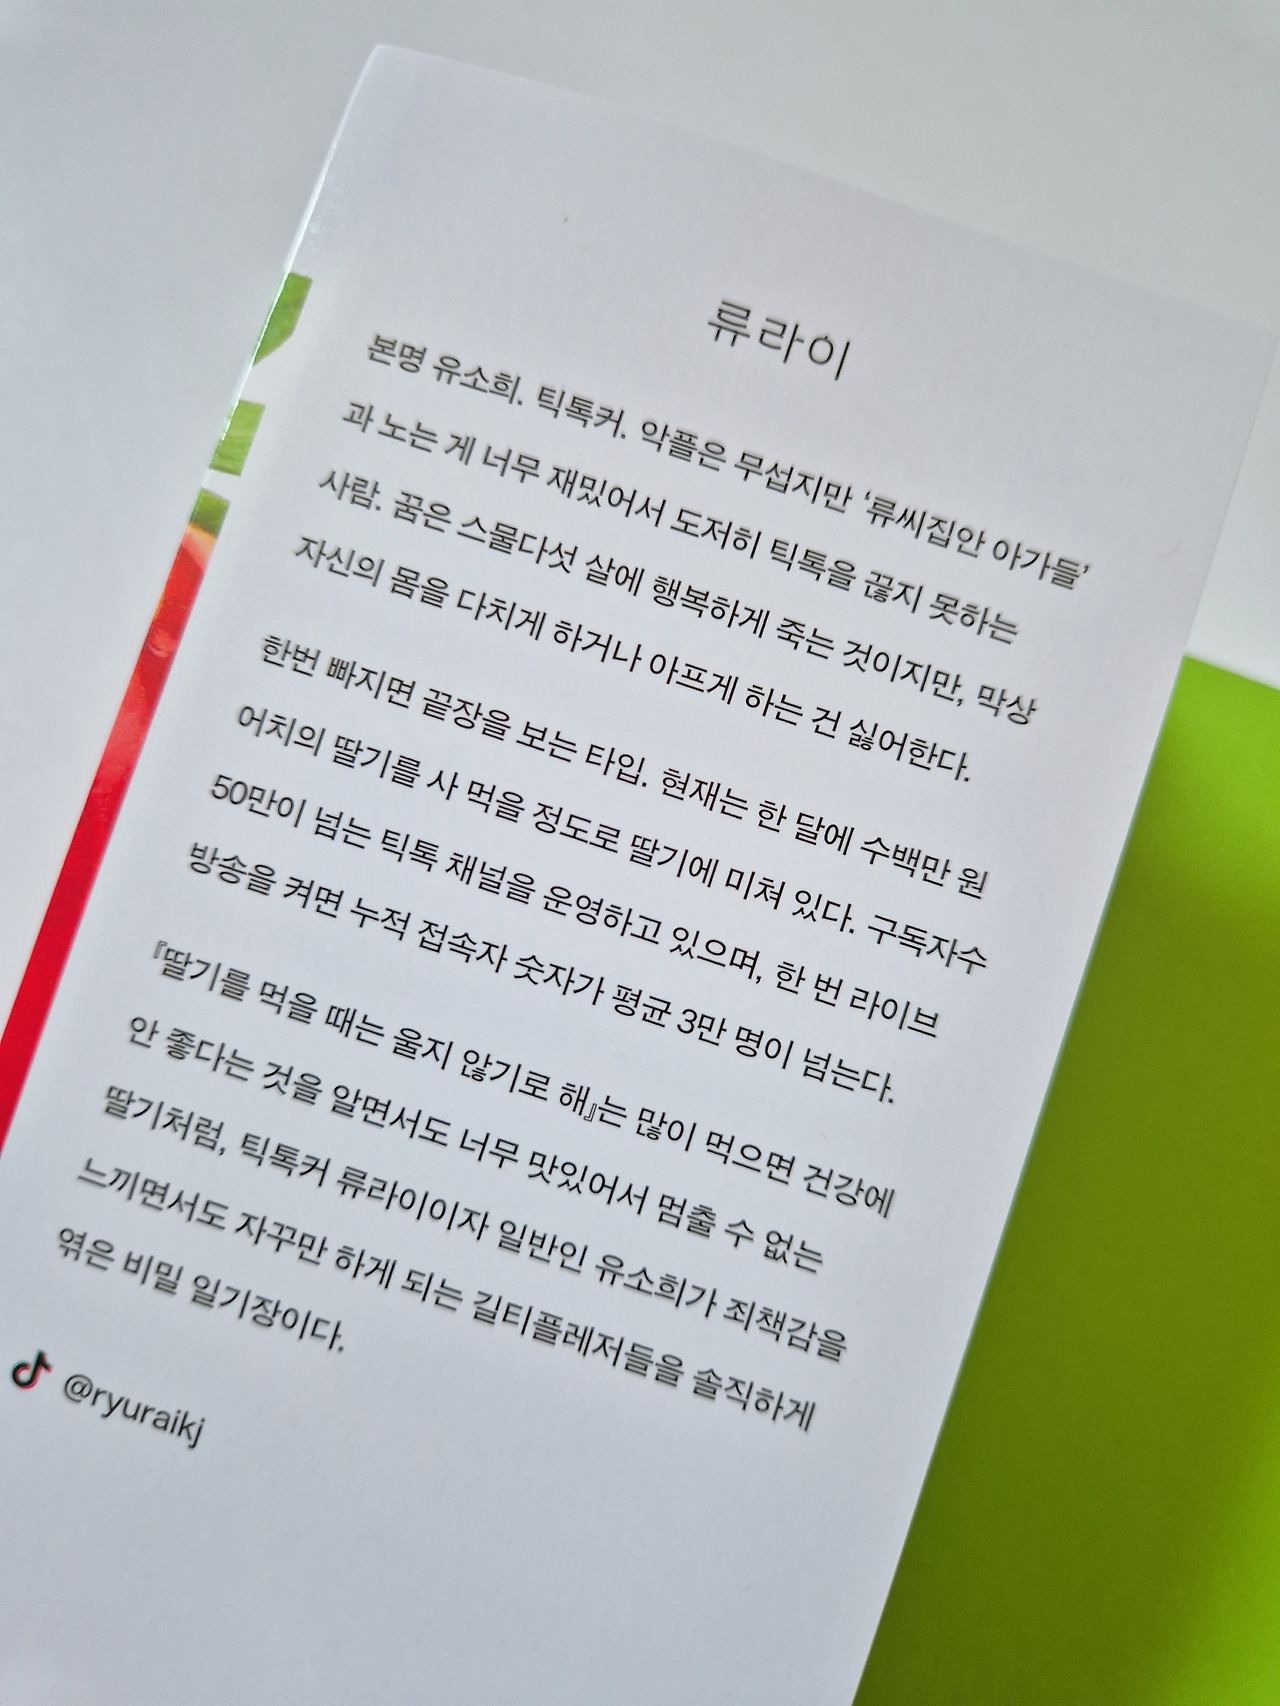 류라이
본명 유소희. 틱톡커. 악플은 무섭지만 ‘류씨집안 아가들’
과 노는 게 너무 재밌어서 도저히 틱톡을 끊지 못하는
사람. 꿈은 스물다섯 살에 행복하게 죽는 것이지만, 막상
자신의 몸을 다치게 하거나 아프게 하는 건 싫어한다.
한번 빠지면 끝장을 보는 타입. 현재는 한 달에 수백만 원
어치의 딸기를 사 먹을 정도로 딸기에 미쳐 있다. 구독자수
50만이 넘는 틱톡 채널을 운영하고 있으며, 한 번 라이브
방송을 켜면 누적 접속자 숫자가 평균 3만 명이 넘는다.
『딸기를 먹을 때는 울지 않기로 해』는 많이 먹으면 건강에
안 좋다는 것을 알면서도 너무 맛있어서 멈출 수 없는
딸기처럼, 틱톡커 류라이이자 일반인 유소희가 죄책감을
느끼면서도 자꾸만 하게 되는 길티플레저들을 솔직하게
엮은 비밀 일기장이다.
@ryuraikj